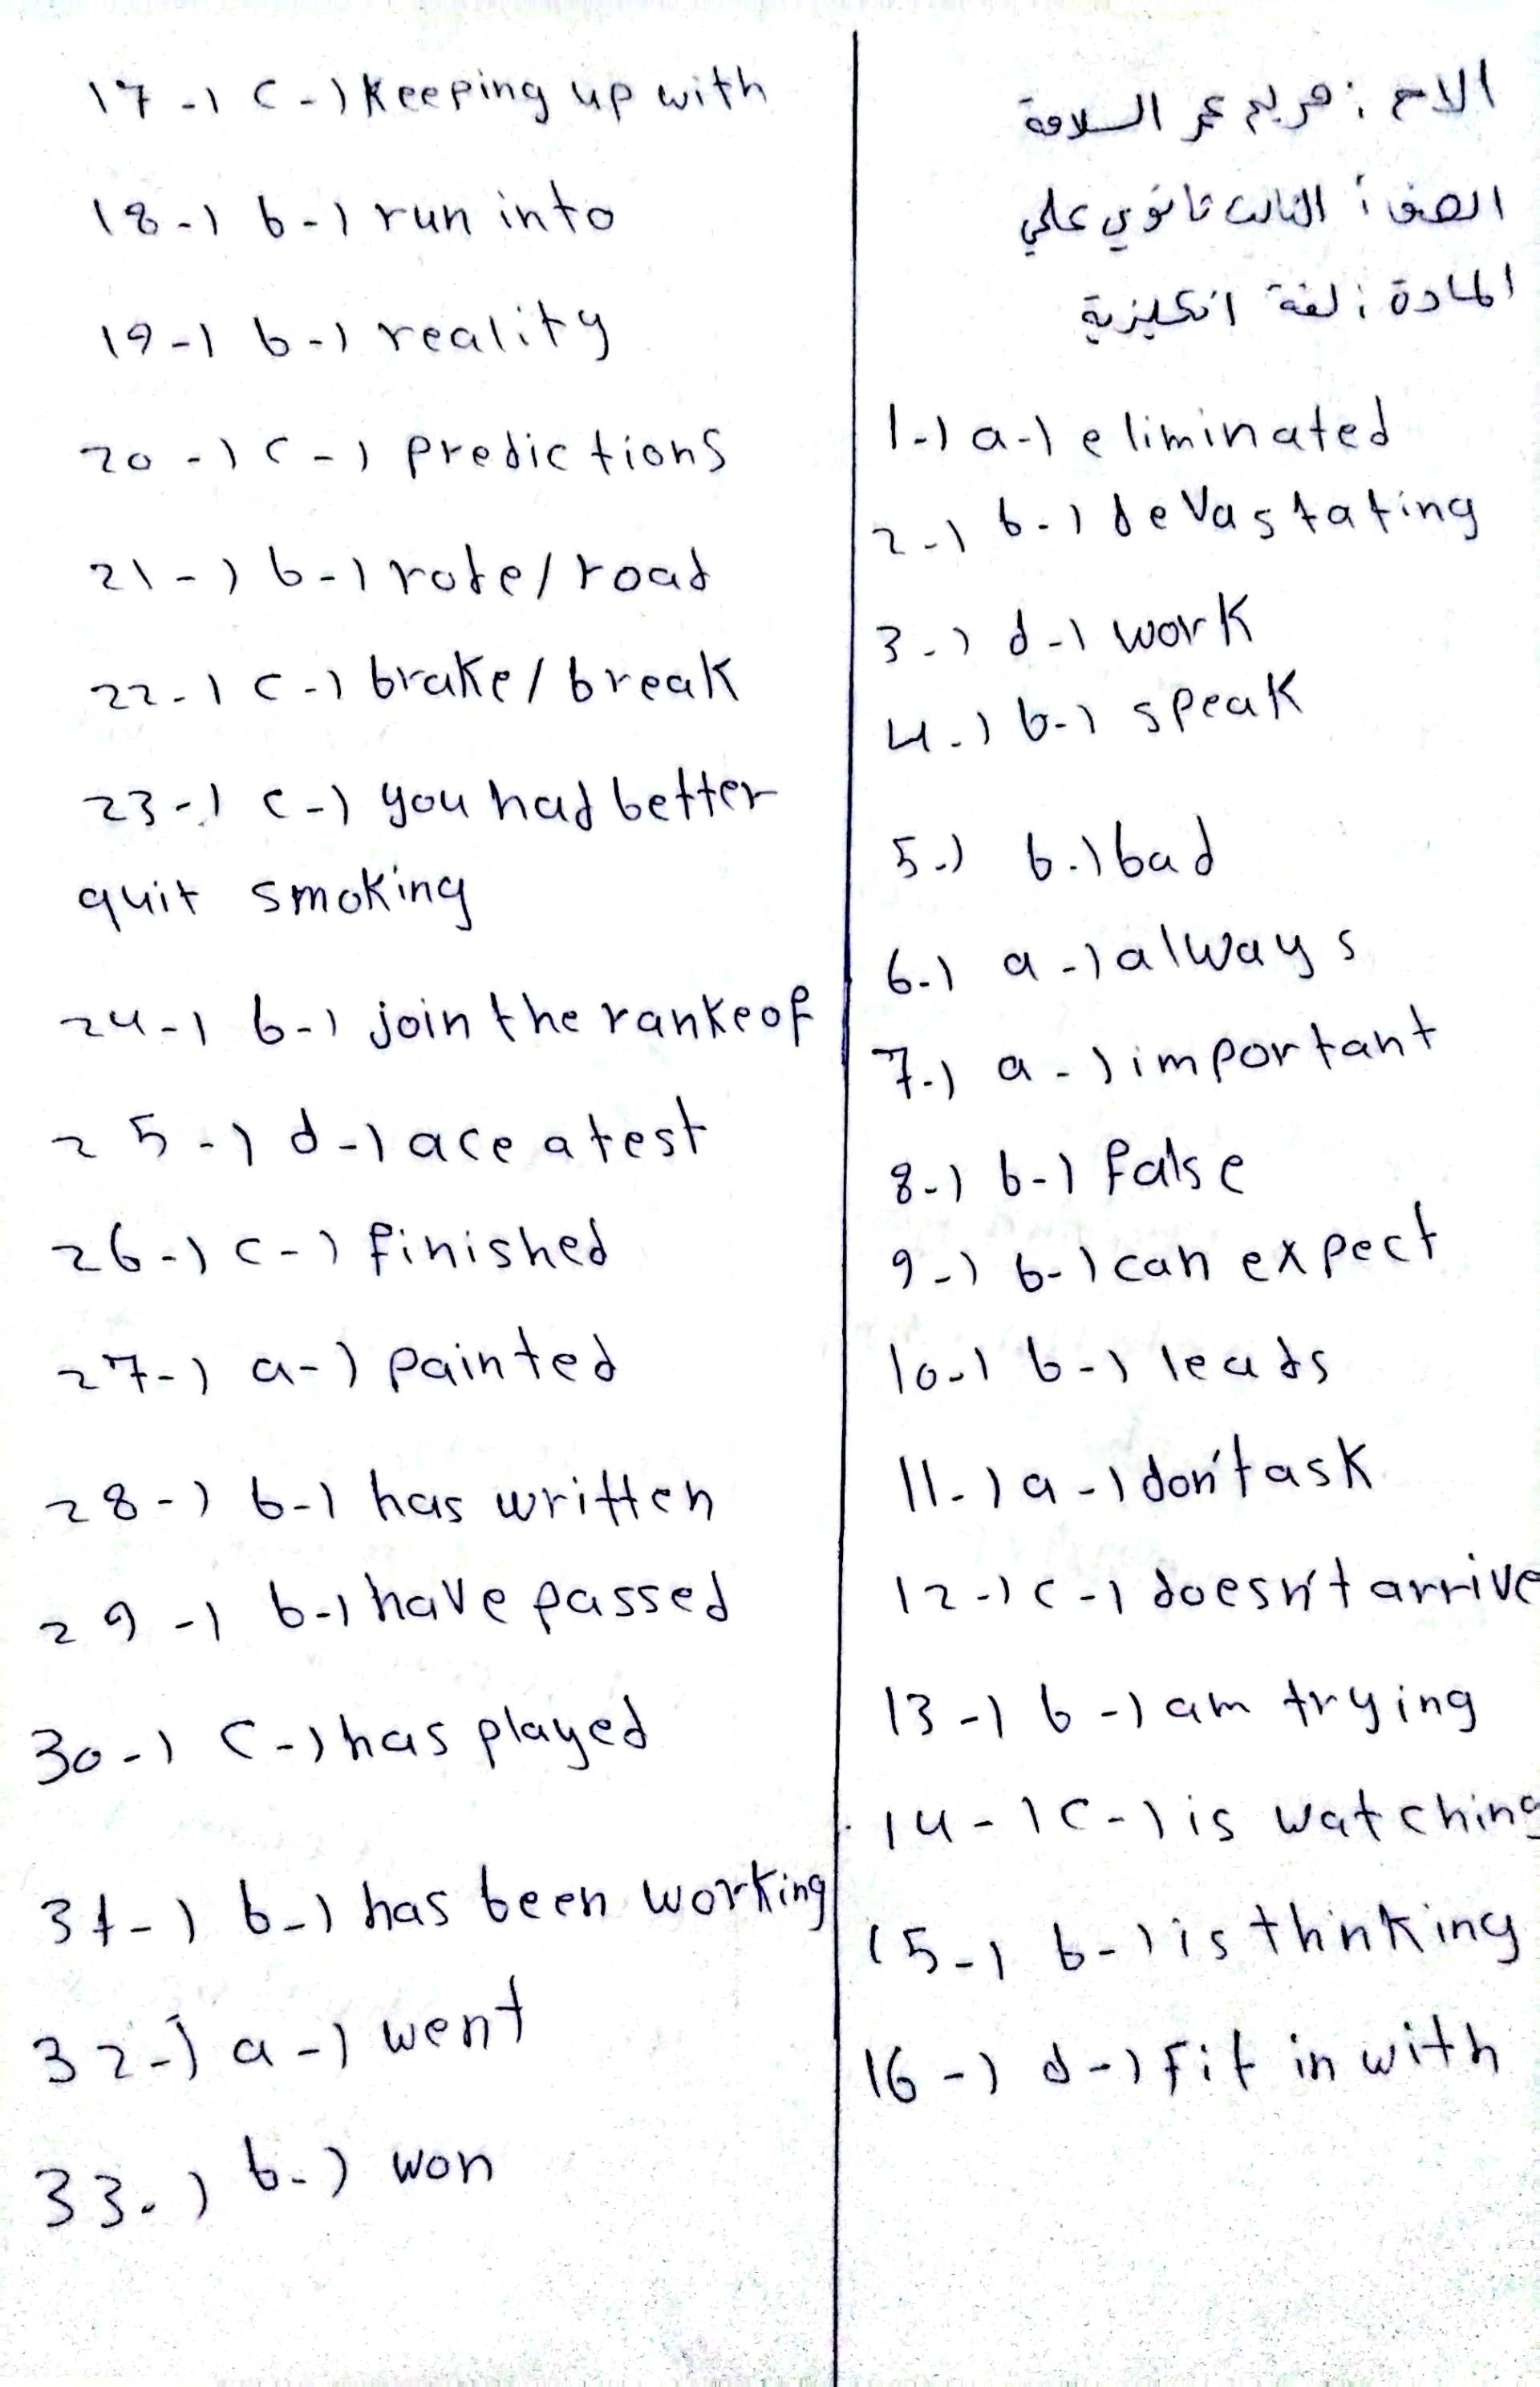 الاسم : مريم عمر السلامة
الصف : الثالث ثانوي علمي
المادة : لغة انكليزية
1-) a-) eliminated
2-) b-) devastating
3-) d-) work
4-) b-) speak
5-) b-) bad
6-) a-) always
7-) a-) important
8-) b-) false
9-) b-) can expect
10-) b-) leads
11-) a-) don't ask
12-) c-) doesn't arrive
13-) b-) am trying
14-) c-) is watching
15-) b-) is thinking
16-) d-) fit in with
17-) c-) keeping up with
18-) b-) run into
19-) b-) reality
20-) c-) predictions
21-) b-) rode/road
22-) c-) brake/break
23-) c-) you had better
quit smoking
24-) b-) join the ranke of
25-) d-) ace a test
26-) c-) finished
27-) a-) painted
28-) b-) has written
29-) b-) have passed
30-) c-) has played
31-) b-) has been working
32-) a-) went
33-) b-) won